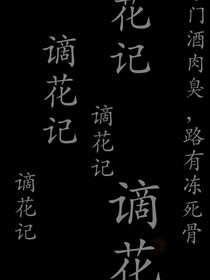 门酒肉臭,路有冻死骨
花记
谪花
谪花记
谪花记
谪花记